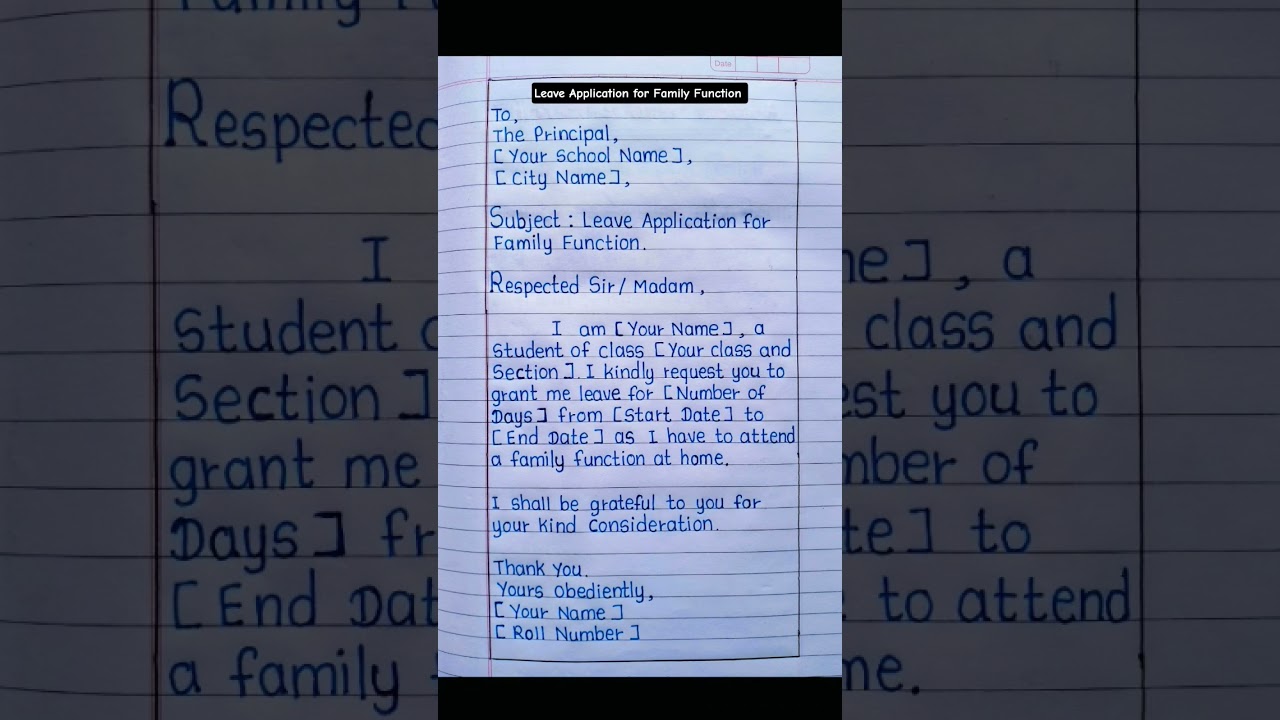 Date
Leave Application for Family Function
To,
The Principal,
[Your School Name],
[City Name],
Subject : Leave Application for
Family Function.
Respected Sir/ Madam,
I am [Your Name], a
Student of class [Your class and
Section]. I kindly request you to
grant me leave for [Number of
Days] from [Start Date] to
[End Date] as I have to attend
a family function at home.
I shall be grateful to you for
your kind consideration.
Thank you.
Yours obediently,
[Your Name]
[Roll Number]
Respected
I
Student
Section]
grant me
Days] fr
[End Dat
a family
me], a
class and
est you to
mber of
te] to
to attend
me.